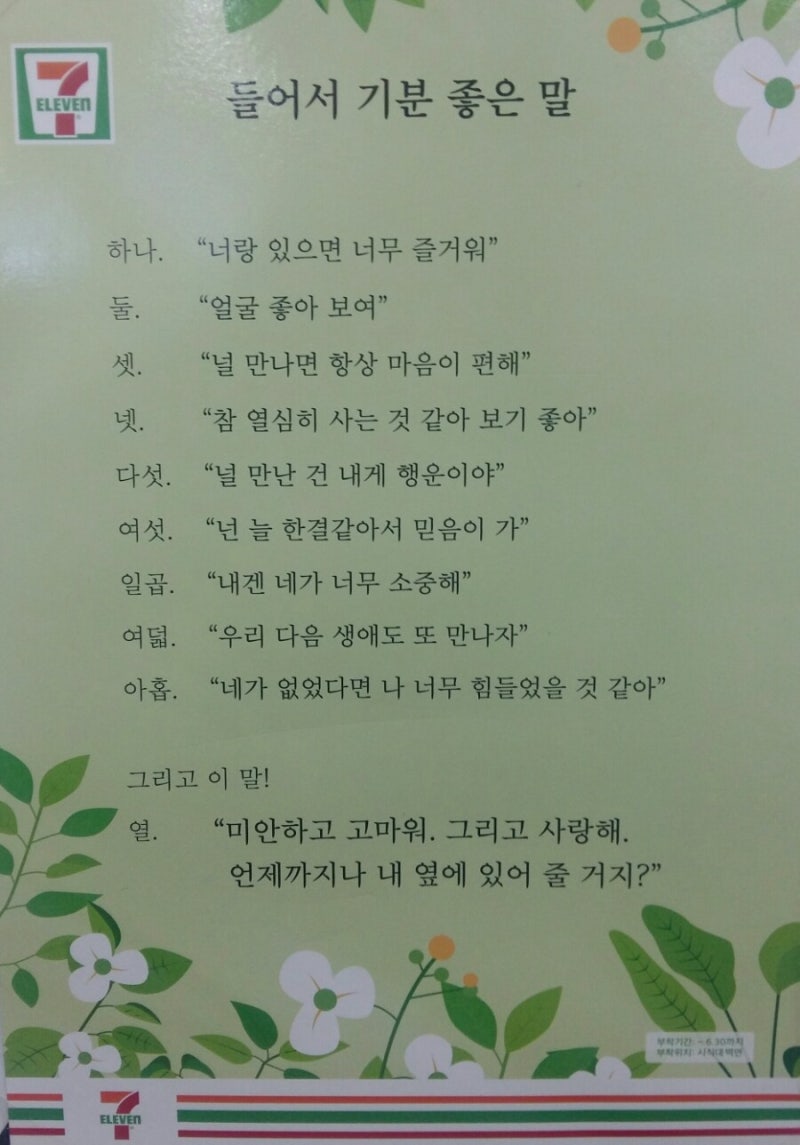 7
ELEVEN
들어서 기분 좋은 말
하나. “너랑 있으면 너무 즐거워”
둘. “얼굴 좋아 보여”
셋. “널 만나면 항상 마음이 편해”
넷. “참 열심히 사는 것 같아 보기 좋아”
다섯. “널 만난 건 내게 행운이야”
여섯. “넌 늘 한결같아서 믿음이 가”
일곱. “내겐 네가 너무 소중해”
여덟. “우리 다음 생애도 또 만나자”
아홉. “네가 없었다면 나 너무 힘들었을 것 같아”
그리고 이 말!
열. “미안하고 고마워. 그리고 사랑해.
언제까지나 내 옆에 있어 줄 거지?”
부착기간: ~ 6.30까지
부착위치: 시식대 벽면
7
ELEVEN